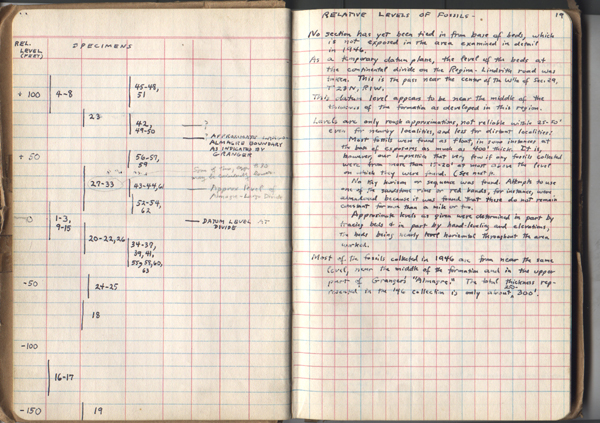 REL.
LEVEL
(FEET)
SPECIMENS
+100
4-8
45-48,
51
23
42,
49-50
?
?
APPROXIMATE
ALMAGRE BOUNDARY
AS INDICATED BY
GRANGER
+50
56-57,
59
27-33
43-44, 61
Approx level of
Almagre-Largo Divide
52-54,
62
0
1-3,
9-15
DATUM LEVEL AT
DIVIDE
20-22, 26
34-37,
39, 41,
55, 58, 60,
63
-50
24-25
18
-100
16-17
-150
19
RELATIVE LEVELS OF FOSSILS
19
No section has yet been tied in from base of beds, which
is not exposed in the area examined in detail
in 1946.
As a temporary datum plane, the level of the beds at
the continental divide on the Regina-Lindrith road was
taken. This is the pass near the center of the W½ of Sec. 29,
T 23 N, R 1 W.
This datum level appears to be near the middle of the
thickness of the formation as developed in this region.
Levels are only rough approximations, not reliable within 25-50'
even for nearby localities, and less for distant localities:
Most fossils were found as float, in some instances at
the base of exposures as much as 400' thick. It is,
however, our impression that very few if any fossils collected
were from more than 15-20' at most above the level
on which they were found. (See next p.)
No key horizon or sequence was found. Attempts to use
one of the sandstone rims or red bands, for instance, were
abandoned because it was found that these do not remain
constant for more than a mile or two.
Approximate levels as given were determined in part by
tracing beds & in part by hand-leveling and elevations,
the beds being nearly level horizontal throughout the area
worked.
Most of the fossils collected in 1946 are from near the same
level, near the middle of the formation and in the upper
part of Granger's "Almagre." The total thickness rep-
resented in the 1946 collection is only about 250-300'.